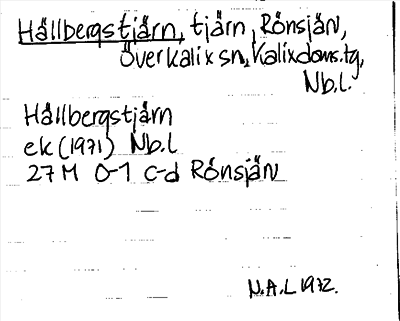 Hällbergstjärn, tjärn, Rönsjän,
Överkalix sn, Kalixdoms.tg,
Nb.l.
Hällbergstjärn
ek (1971) Nb.l
27 M 0-1 c-d Rönsjän
N.A.L 1972.